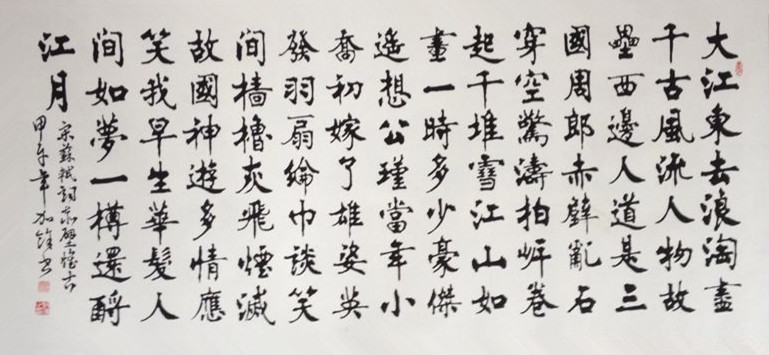 大江東去浪淘盡
千古風流人物故
壘西邊人道是三
國周郎赤壁亂石
穿空驚濤拍岸卷
起千堆雪江山如
畫一時多少豪傑
遙想公瑾當年小
喬初嫁了雄姿英
發羽扇綸巾談笑
間檣櫓灰飛煙滅
故國神遊多情應
笑我早生華髮人
間如夢一樽還酹
江月
宋蘇軾詞赤壁懷古
甲午年加書